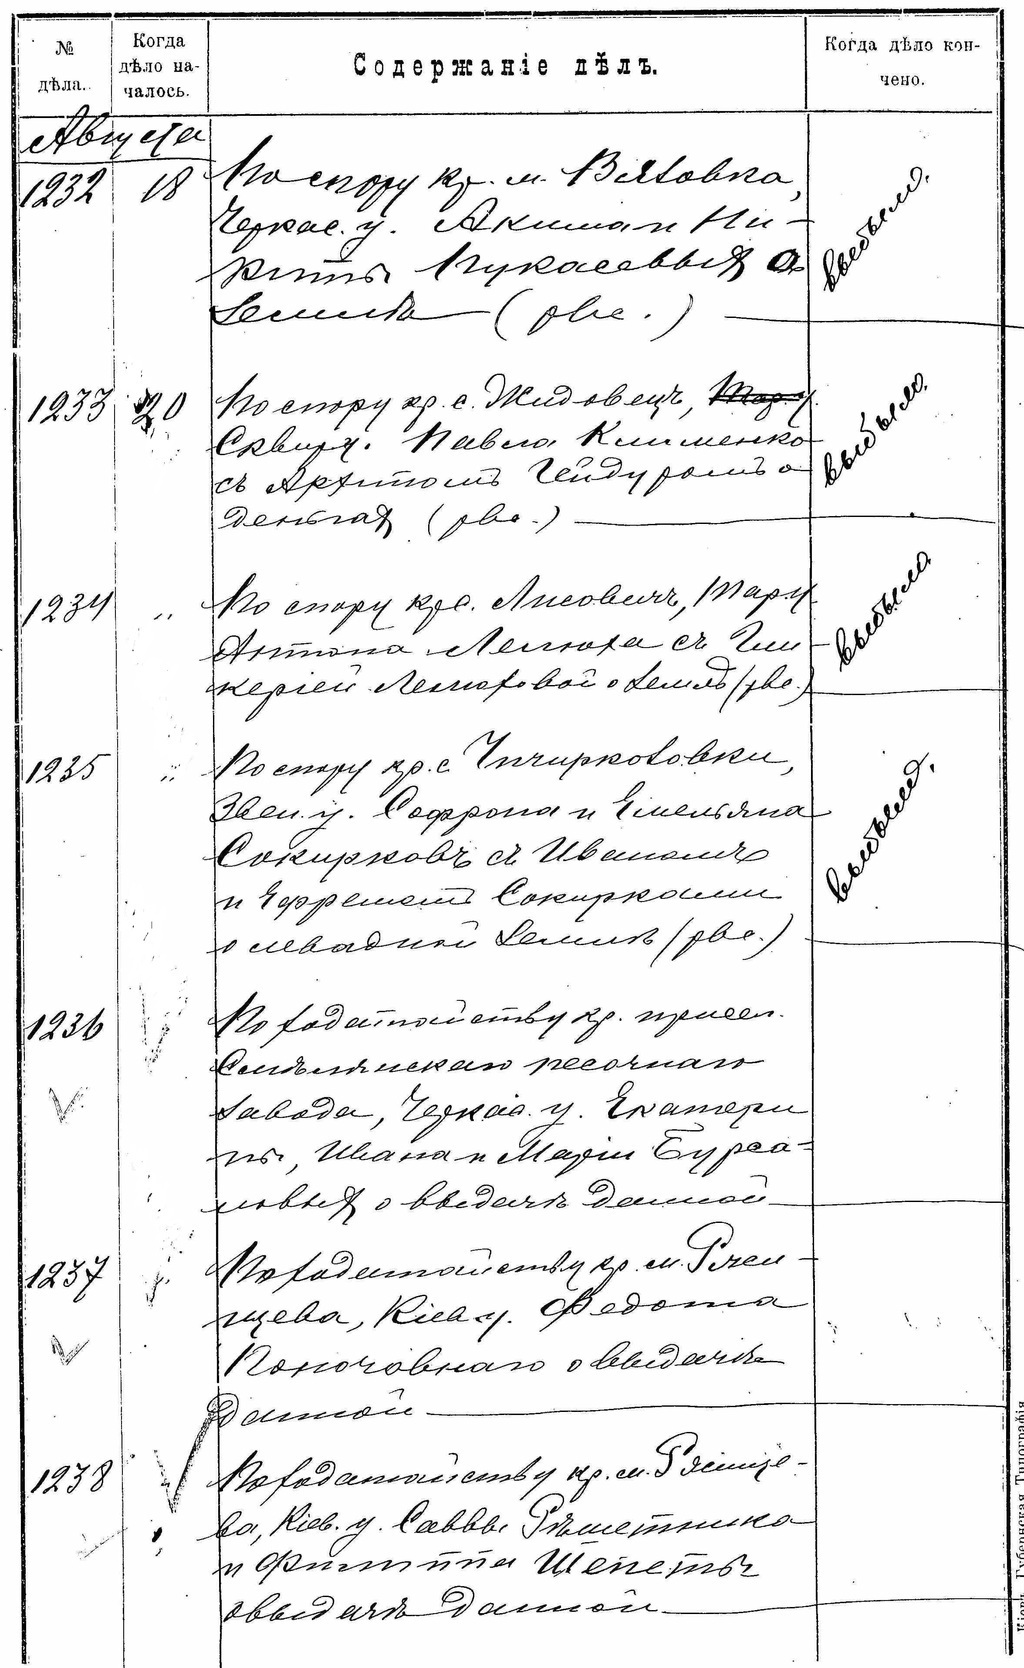 № дѣла.
Когда дѣло началось.
Содержаніе дѣлъ.
Когда дѣло кончено.
Августа
1232 18 По спору кр. м. Вязовка,
Черкас. у. Акима и Ни-
киты Лукасевыхъ о
землѣ (рве.)
выбыло.
1233 20 По спору кр. с. Жидовецъ,
Сквир. у. Павла Клименко
съ Архипомъ о
деньгах (рве.)
выбыло.
1234 " По спору кр. с. Лисович, Тар. у
Антона Лелюха съ Гли-
керіей Лелюховой о землѣ (рве.)
выбыло.
1235 " По спору кр. с Чичиркозовки,
Звен. у. Софрона и Емельяна
Сокирковъ съ Иваномъ
и Ефремомъ Сокирками
о левадной землѣ (рве.)
выбыло.
1236 По ходатайству кр. присел.
Смѣлянскаго песочнаго
завода, Черкас. у. Екатери
ны, Ивана и Маріи Бурса-
ковых о выдачѣ данной
1237 По ходатайству кр. м. Ржи-
щева, Кіев у. Федота
о выдачѣ
данной
1238 По ходатайству кр. м. Ржище-
ва, Кіев. у. Саввы Рѣшетника
и Филиппа Шепеты
о выдачѣ данной
Кіевъ. Губернская Типографія